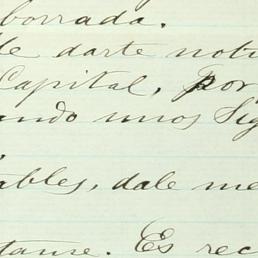 borrada.
de darte noti
Capital, por
ando unos Sig
ables, dale me
tanse. Es rec